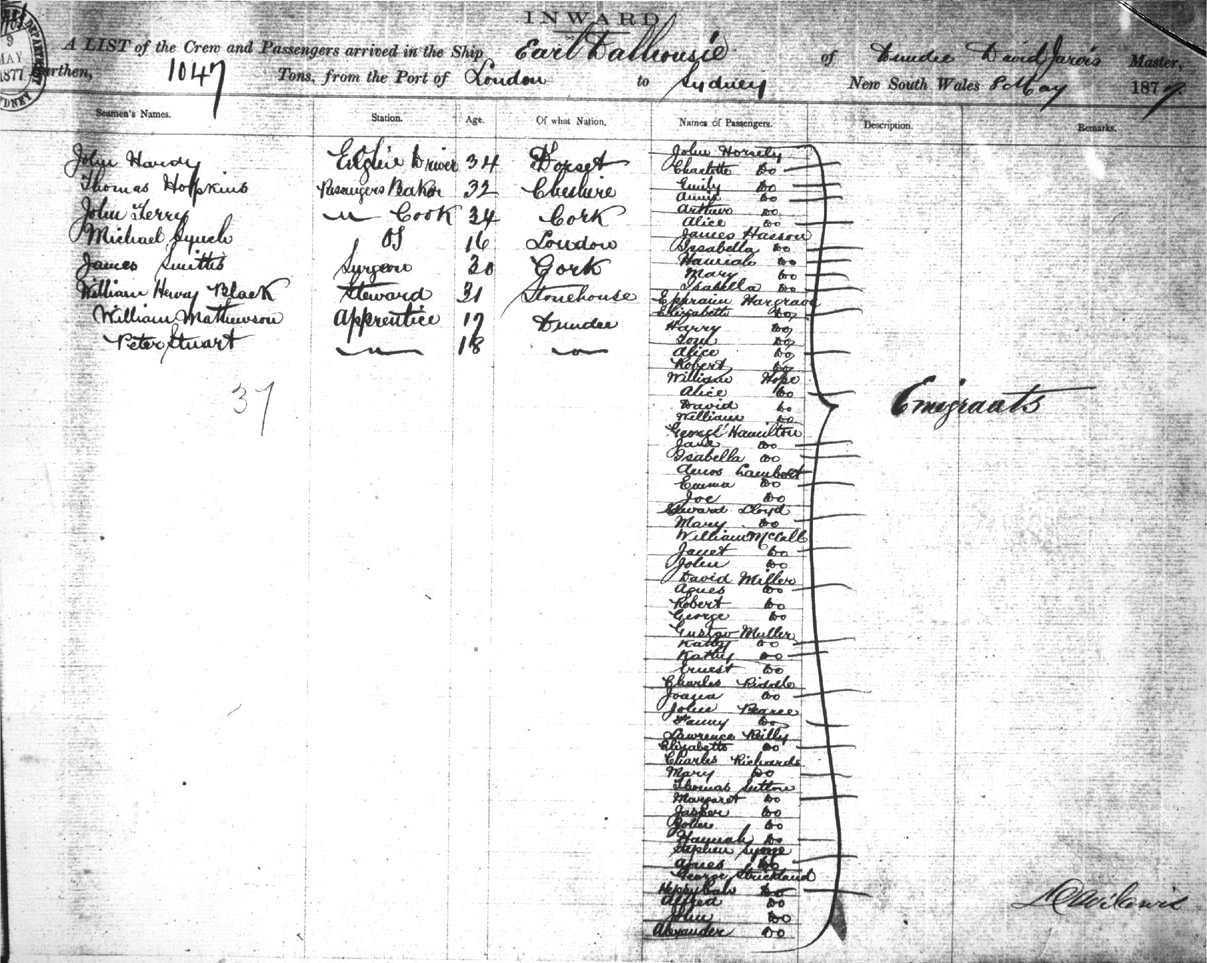 INWARD
A LIST of the Crew and Passengers arrived in the Ship Earl Dalhousie of Dundee David Jarvis Master,
Burthen, 1047 Tons, from the Port of London to Sydney New South Wales 8 May 1877
9
MAY
1877
SYDNEY
Seamen's Names. Station. Age. Of what Nation. Names of Passengers. Description. Remarks.
John Hardy Engine Driver 34 Dorset
Thomas Hopkins Passengers Baker 32 Cheshire
John Terry " Cook 34 Cork
Michael Lynch OS 16 London
James Smith Surgeon 30 Cork
William Henry Black Steward 31 Stonehouse
William Mathewson Apprentice 17 Dundee
Peter Stuart " 18 "
37
John Horsely
Charlotte Do
Emily Do
Annie Do
Arthur Do
Alice Do
James Hasson
Issabella Do
Hannah Do
Mary Do
Isabella Do
Ephraim Hargrave
Elizabeth Do
Harry Do
Tom Do
Alice Do
Robert Do
William Hope
Alice Do
David Do
William Do
George Hamilton
Jane Do
Issabella Do
Amos Lambert
Emma Do
Joe Do
Edward Lloyd
Mary Do
William McCall
Janet Do
John Do
David Miller
Agnes Do
Robert Do
George Do
Gustov Muller
Kathy Do
Kathy Do
Ernest Do
Charles Riddle
Joana Do
John Pearce
Fanny Do
Lawrence Reilly
Elizabeth Do
Charles Richards
Mary Do
Thomas Sutton
Margaret Do
Jasper Do
John Do
Hannah Do
Stephen Syme
Agnes Do
George Strickland
Do
Alfred Do
John Do
Alexander Do
Emigrants